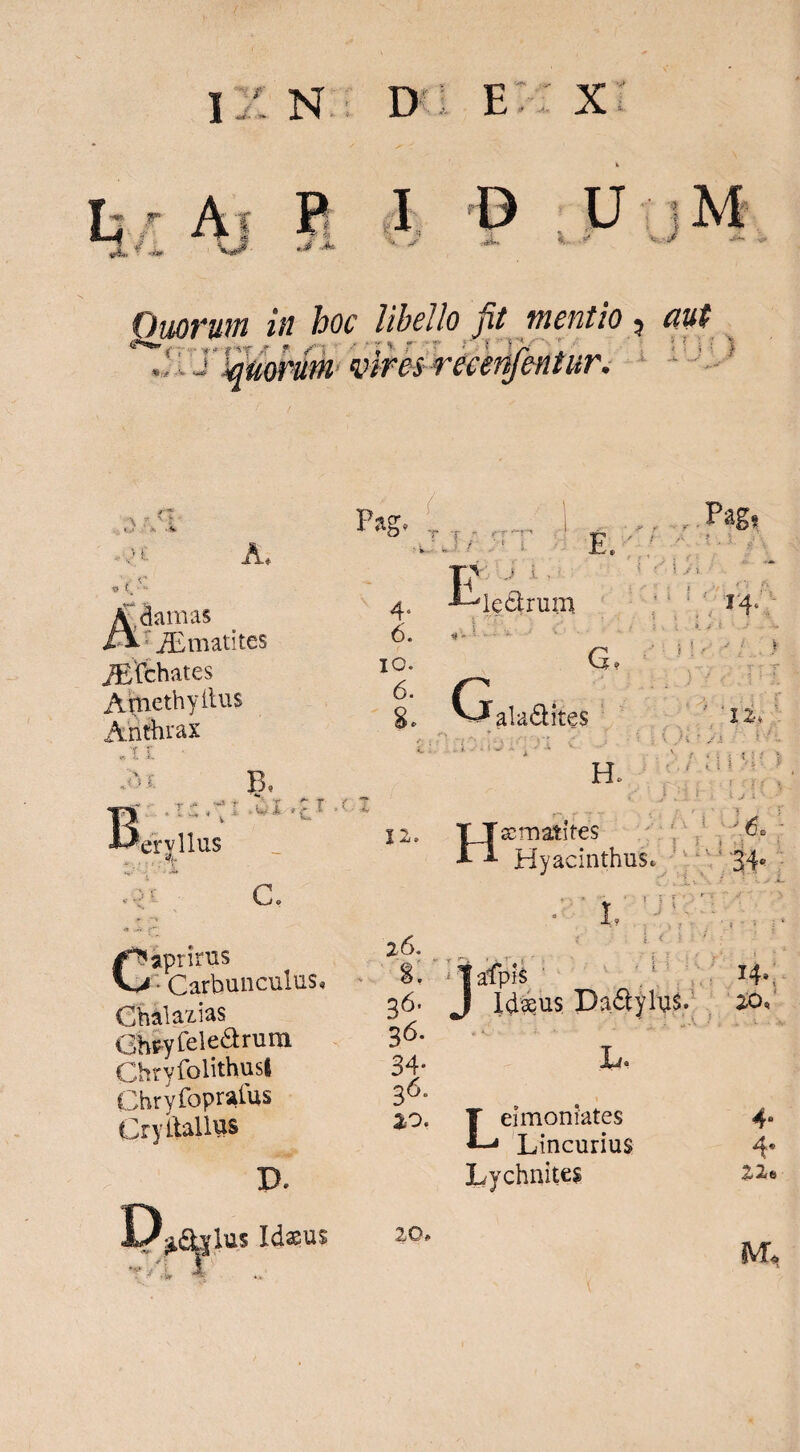 INDEX
LAPIDUM
Quorum in hoc libello fit mentio, aut
quorum vires recenſentur.
Pag.
A.
Adamas 4.
Æmatites 6.
Æſchates 10.
Amethyſtus 6.
Anthrax 8.
B.
Beryllus 12.
C.
Caprirus 26.
Carbunculus. 8.
Chalazias 36.
Chryſelectrum 36.
Chryſolithusſ 34.
Chryſopraſus 36.
Cryſtallus 20.
D.
Dactylus Idæus 20.
Pag.
E.
Electrum 14.
G.
Galactites 12.
H.
Hæmatites 6.
Hyacinthus. 34.
I.
Jaſpis 14.
Idæus Dactylus. 20.
L.
Leimoniates 4.
Lincurius 4.
Lychnites 22.
M.